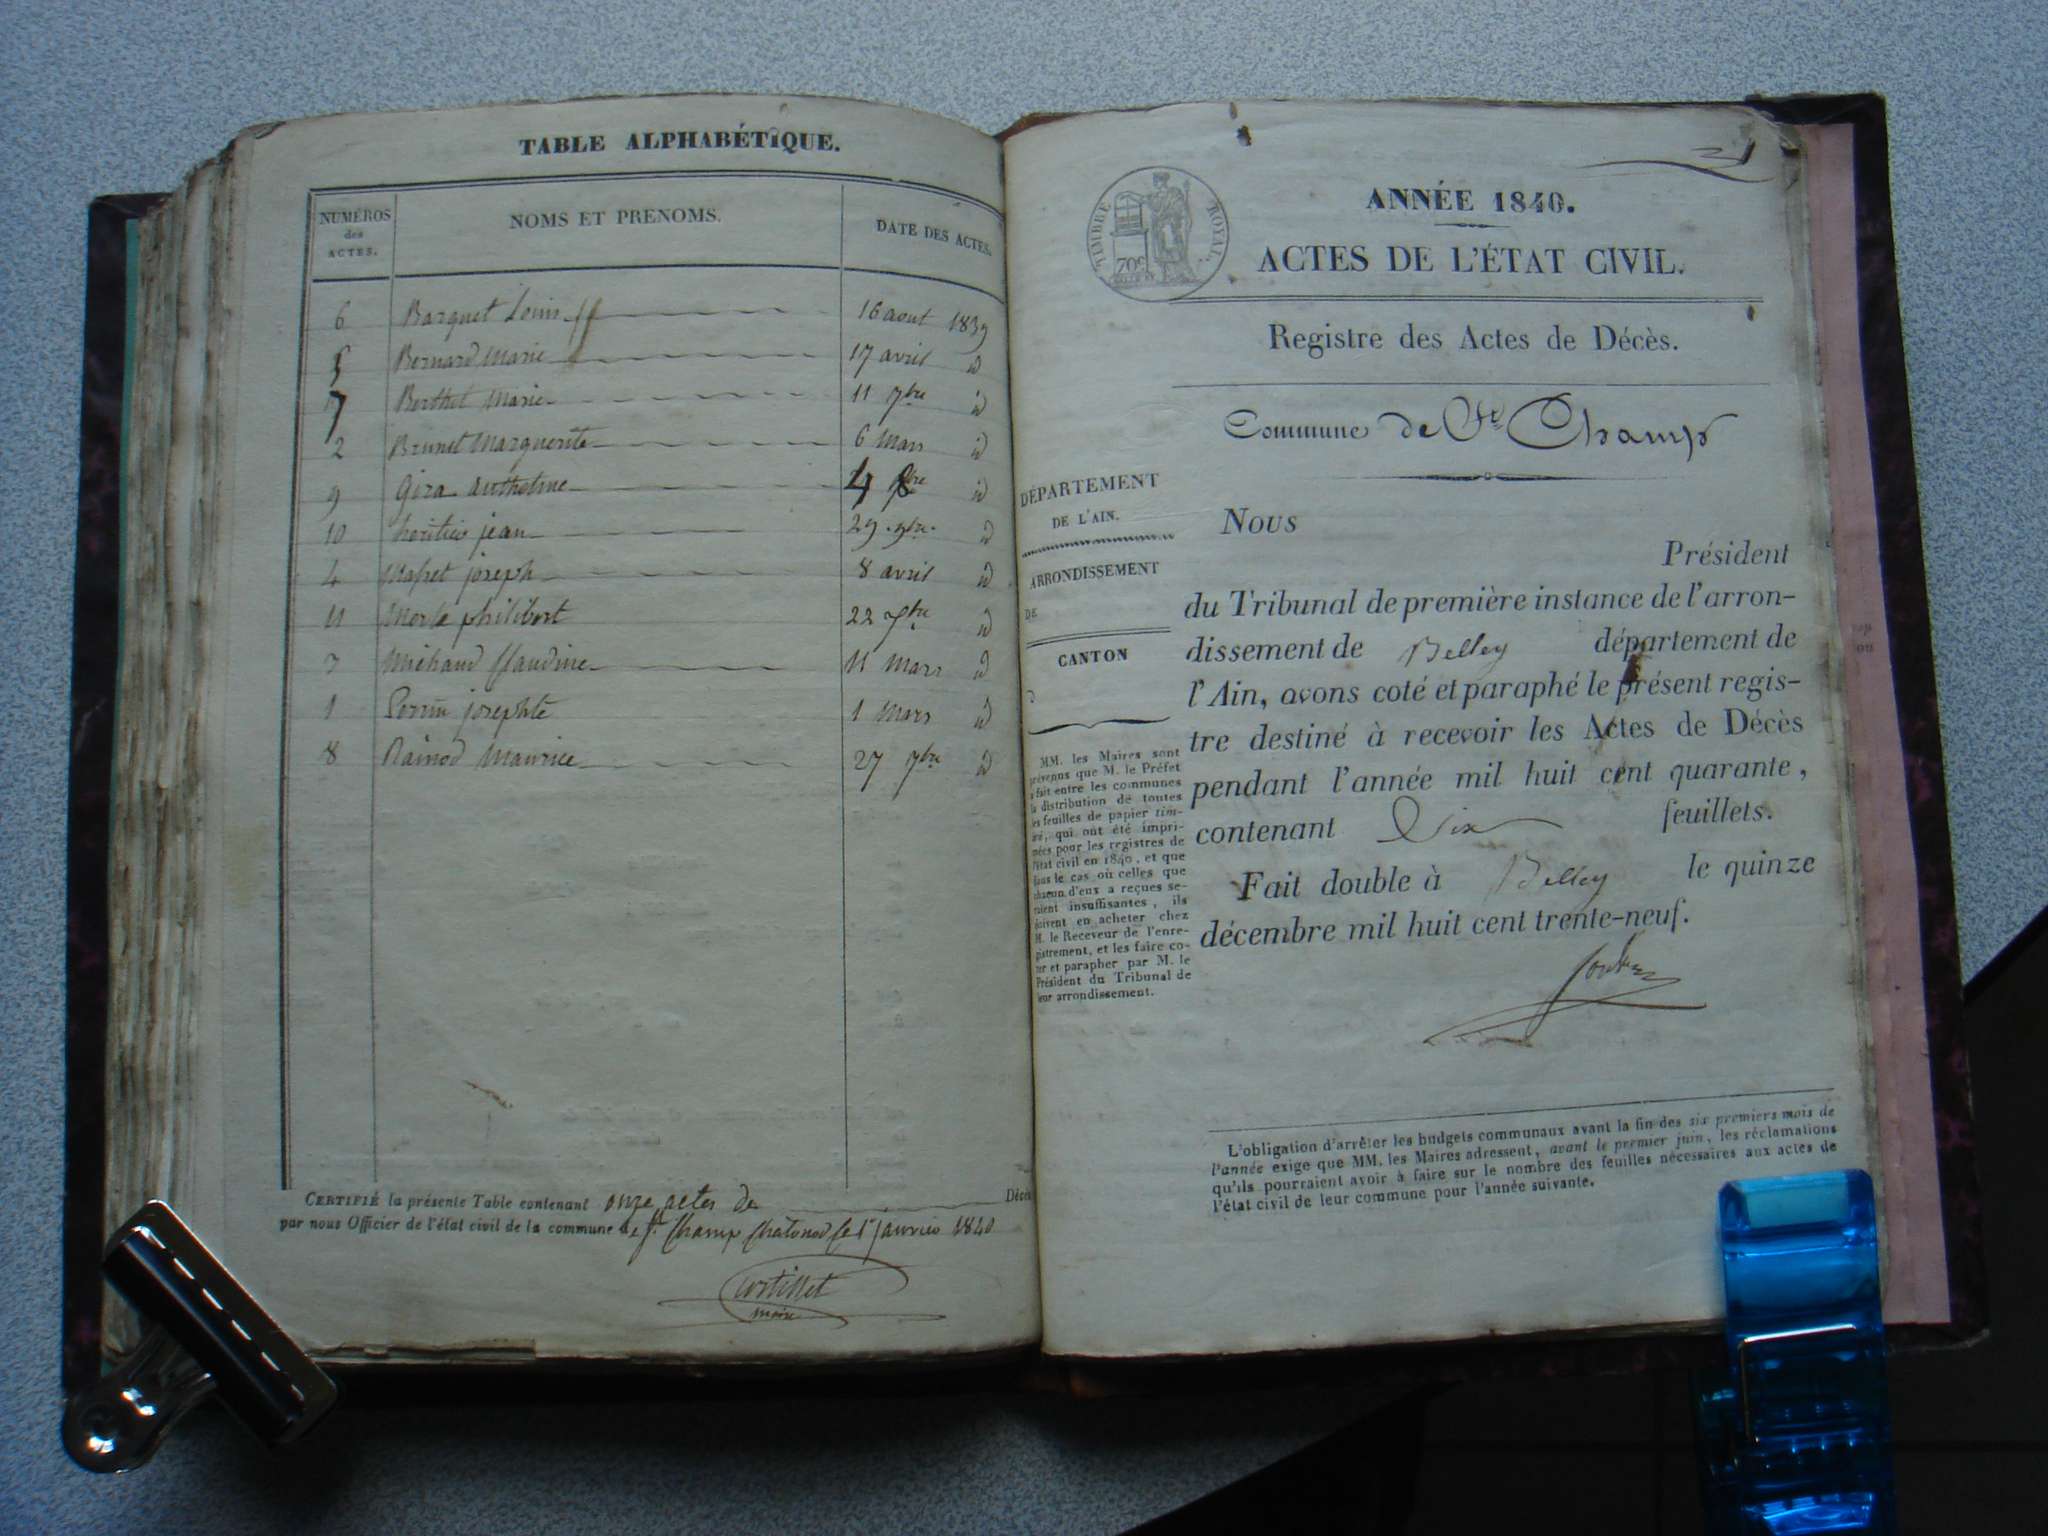 TABLE ALPHABÉTIQUE.
NUMÉROS des ACTES. NOMS ET PRENOMS. DATE DES ACTES.
6 Barquet Louis 16 aout 1839
5 Bernard Marie 17 avril id
7 Berthet Marie 11 7bre id
2 Brunet Marguerite 6 Mars id
9 Goza anthelme 4 8bre id
10 heritier jean 29 9bre id
4 Masset joseph 8 avril id
11 philibert 22 id
3 Michaud Claudine 11 Mars id
1 Perrin josephte 1 Mars id
8 Rainod Maurice 27 7bre id
CERTIFIÉ la présente Table contenant onze actes de Décè
par nous Officier de l'état civil de la commune de St Champ Chatonod le 1er janvier 1840
Cortillet
maire
TIMBRE ROYAL
70c
ANNÉE 1840.
ACTES DE L'ÉTAT CIVIL.
Registre des Actes de Décès.
Commune de St Champ
DÉPARTEMENT
DE L'AIN.
ARRONDISSEMENT
DE
CANTON
D
MM. les Maires sont
prévenus que M. le Préfet
a fait entre les communes
la distribution de toutes
les feuilles de papier tim-
bré, qui ont été impri-
mées pour les registres de
l'état civil en 1840, et que
dans le cas où celles que
chacun d'eux a reçues se-
raient insuffisantes, ils
doivent en acheter chez
M. le Receveur de l'enre-
gistrement, et les faire co-
ter et parapher par M. le
Président du Tribunal de
leur arrondissement.
Nous
Président
du Tribunal de première instance de l'arron-
dissement de Belley département de
l'Ain, avons coté et paraphé le présent regis-
tre destiné à recevoir les Actes de Décès
pendant l'année mil huit cent quarante,
contenant Dix feuillets.
Fait double à Belley le quinze
décembre mil huit cent trente-neuf.
L'obligation d'arrêter les budgets communaux avant la fin des six premiers mois de
l'année exige que MM. les Maires adressent, avant le premier juin, les réclamations
qu'ils pourraient avoir à faire sur le nombre des feuilles nécessaires aux actes de
l'état civil de leur commune pour l'année suivante.